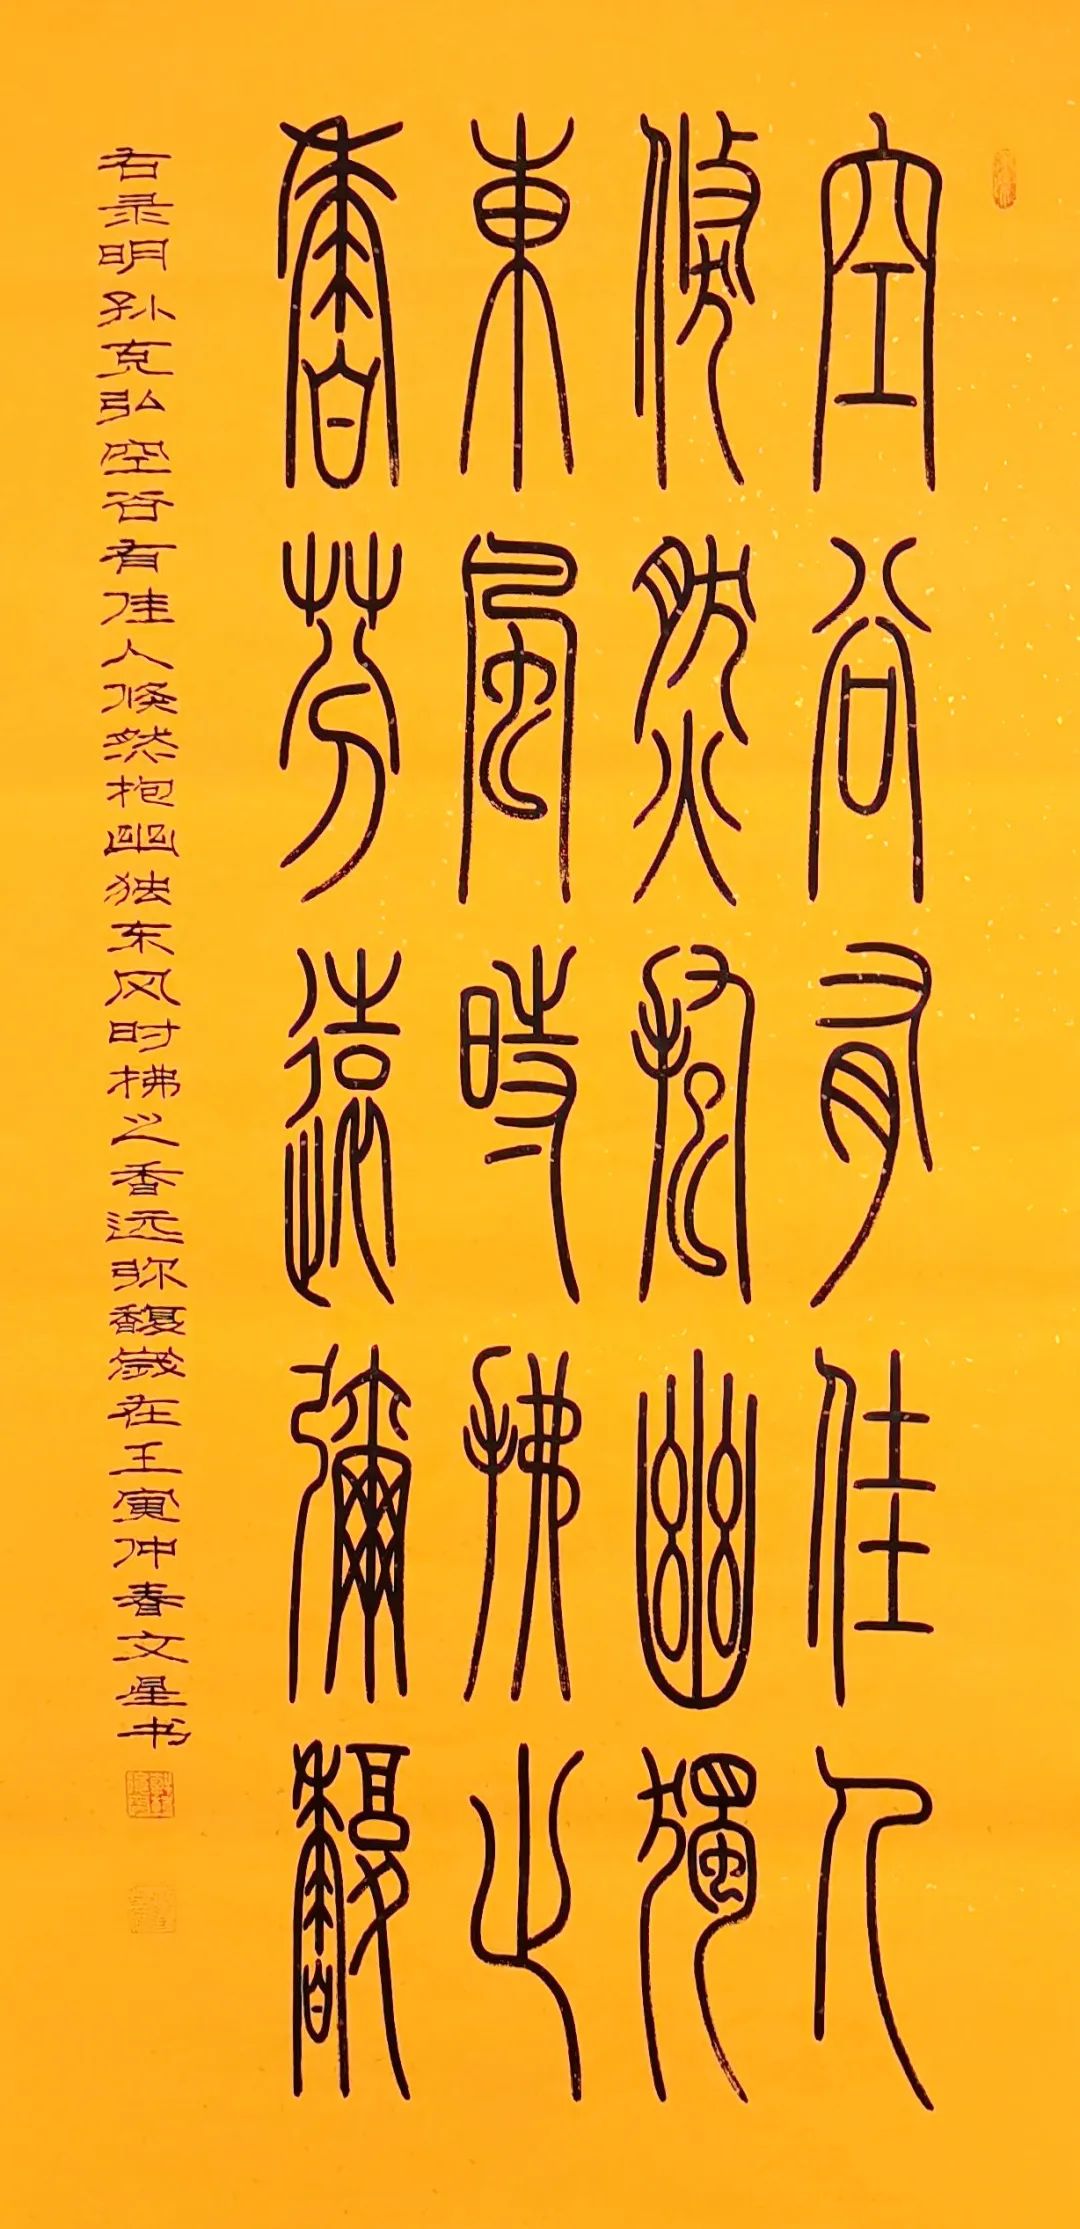 空谷有佳人
倏然抱幽獨
東風時拂之
香芬遠彌馥
右录明孙克弘空谷有佳人倏然抱幽独东风时拂之香远弥馥歲在壬寅仲春文星书